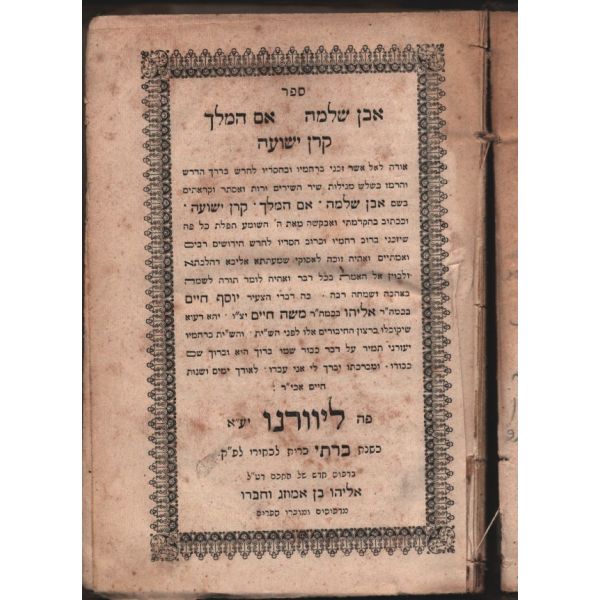 ספר
אבן שלמה אם המלך
קרן ישועה
אודה לאל אשר זכני ברחמיו ובחסדיו לחדש בדרך הדרש
והרמז בשלש מגילות שיר השירים ורות ואסתר וקראתים
בשם אבן שלמה · אם המלך · קרן ישועה ·
וככתוב בהקדמתי ואבקשה מאת ה' השומע תפלת כל פה
שיזכני ברוב רחמיו וברוב חסדיו לחדש חידושים רבים
ואמתיים ואהיה זוכה לאסוקי שמעתתא אליבא דהלכתא
ולכוין אל האמת בכל דבר ואהיה לומד תורה לשמה
באהבה ושמחה רבה · כה דברי הצעיר יוסף חיים
בכמה"ר אליהו בכמה"ר משה חיים יצ"ו · יהא רעוא
שיקובלו ברצון החיבורים אלו לפני הש"ית · והש"ית ברחמיו
יעזרני תמיד על דבר כבוד שמו ברוך הוא וברוך שם
כבודו · ומברכתו יברך לי אני עבדו · לאורך ימים ושנות
חיים אכי"ר :
פה ליוורנו יע"א
בשנת ברתי ברית לבחירי לפ"ק
בדפוס חדש של החכם
אליהו בן אמוזג וחברו
מדפיסים ומוכרי ספרים